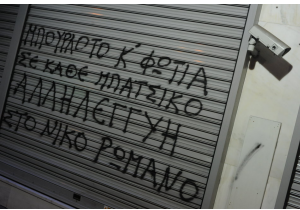 ΜΠΟΥΡΛΟΤΟ Κ' ΦΩΤΙΑ
ΣΕ ΚΑΘΕ ΜΠΑΤΣΙΚΟ
ΑΛΛΗΛΕΓΓΥΗ
ΣΤΟ ΝΙΚΟ ΡΩΜΑΝΟ